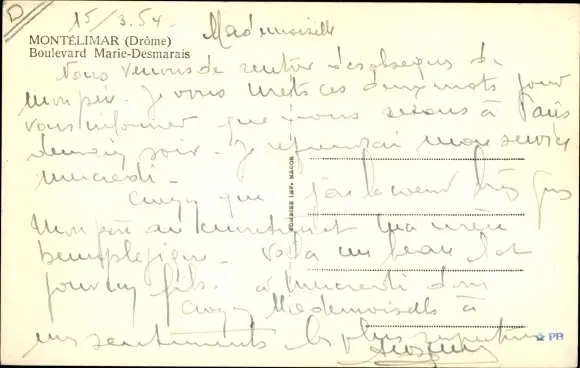 D
15/3.54.
Mademoiselle
MONTÉLIMAR (Drôme)
Boulevard Marie-Desmarais
Nous venons de rentrer des obsèques de
mon père. Je vous mets ces deux mots pour
vous informer que nous serons à Paris
demain soir. Je reprendrai mon service
mercredi -
Croyez que j'ai le coeur très gros
Mon père au cimetière ma mère
hemiplégique - voilà un beau
pour un fils. à mercredi donc
Croyez Mademoiselle à
mes sentiments les plus
NOMBIER IMP. MACON
PB